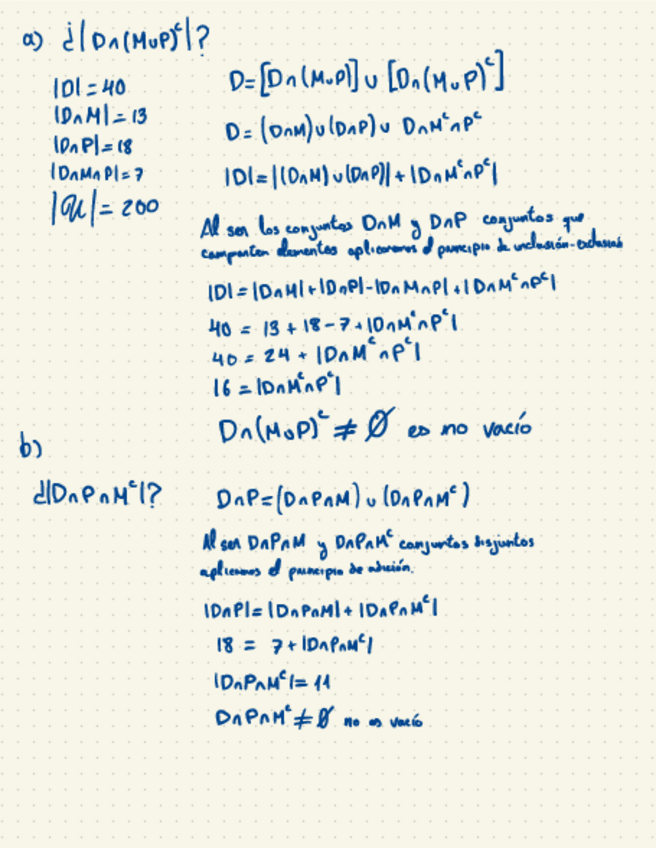 a) ¿|D∩(M∪P)ᶜ|?
|D| = 40
|D∩M| = 13
|D∩P| = 18
|D∩M∩P| = 7
|𝒰| = 200
D = [D∩(M∪P)] ∪ [D∩(M∪P)ᶜ]
D = (D∩M)∪(D∩P)∪ D∩Mᶜ∩Pᶜ
|D| = |(D∩M)∪(D∩P)| + |D∩Mᶜ∩Pᶜ|
Al ser los conjuntos D∩M y D∩P conjuntos que
comparten elementos aplicaremos el principio de inclusión-exclusión
|D| = |D∩M| + |D∩P| - |D∩M∩P| + |D∩Mᶜ∩Pᶜ|
40 = 13 + 18 - 7 + |D∩Mᶜ∩Pᶜ|
40 = 24 + |D∩Mᶜ∩Pᶜ|
16 = |D∩Mᶜ∩Pᶜ|
D∩(M∪P)ᶜ ≠ ∅ es no vacío
b)
¿|D∩P∩Mᶜ|?
D∩P = (D∩P∩M) ∪ (D∩P∩Mᶜ)
Al ser D∩P∩M y D∩P∩Mᶜ conjuntos disjuntos
aplicamos el principio de adición.
|D∩P| = |D∩P∩M| + |D∩P∩Mᶜ|
18 = 7 + |D∩P∩Mᶜ|
|D∩P∩Mᶜ| = 11
D∩P∩Mᶜ ≠ ∅ no es vacío